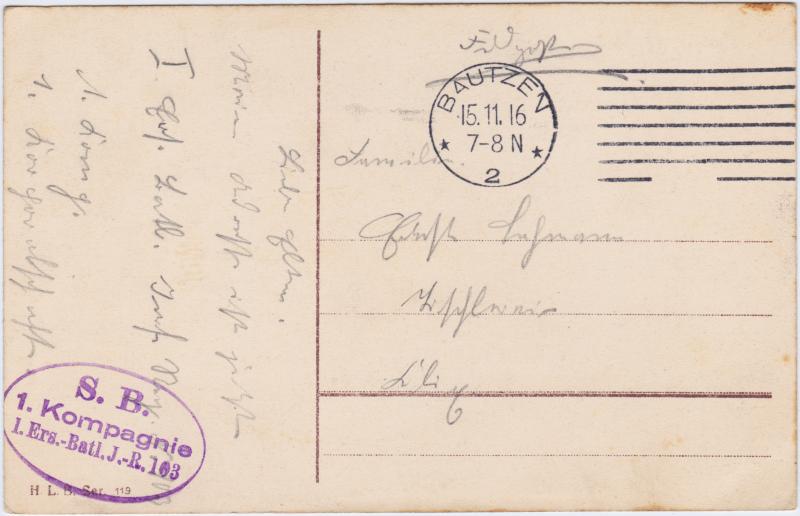 Feldpost
BAUTZEN
15.11.16
7-8 N
2
Familie
Lehmann
Liebe Eltern.
Meine Adresse ist jetzt
I. Ers. Batl. Inf. Reg.
1. Komp.
1. Korporalschaft
S. B.
1. Kompagnie
1. Ers.-Batl. J.-R. 103
H. L. B. Ser. 119